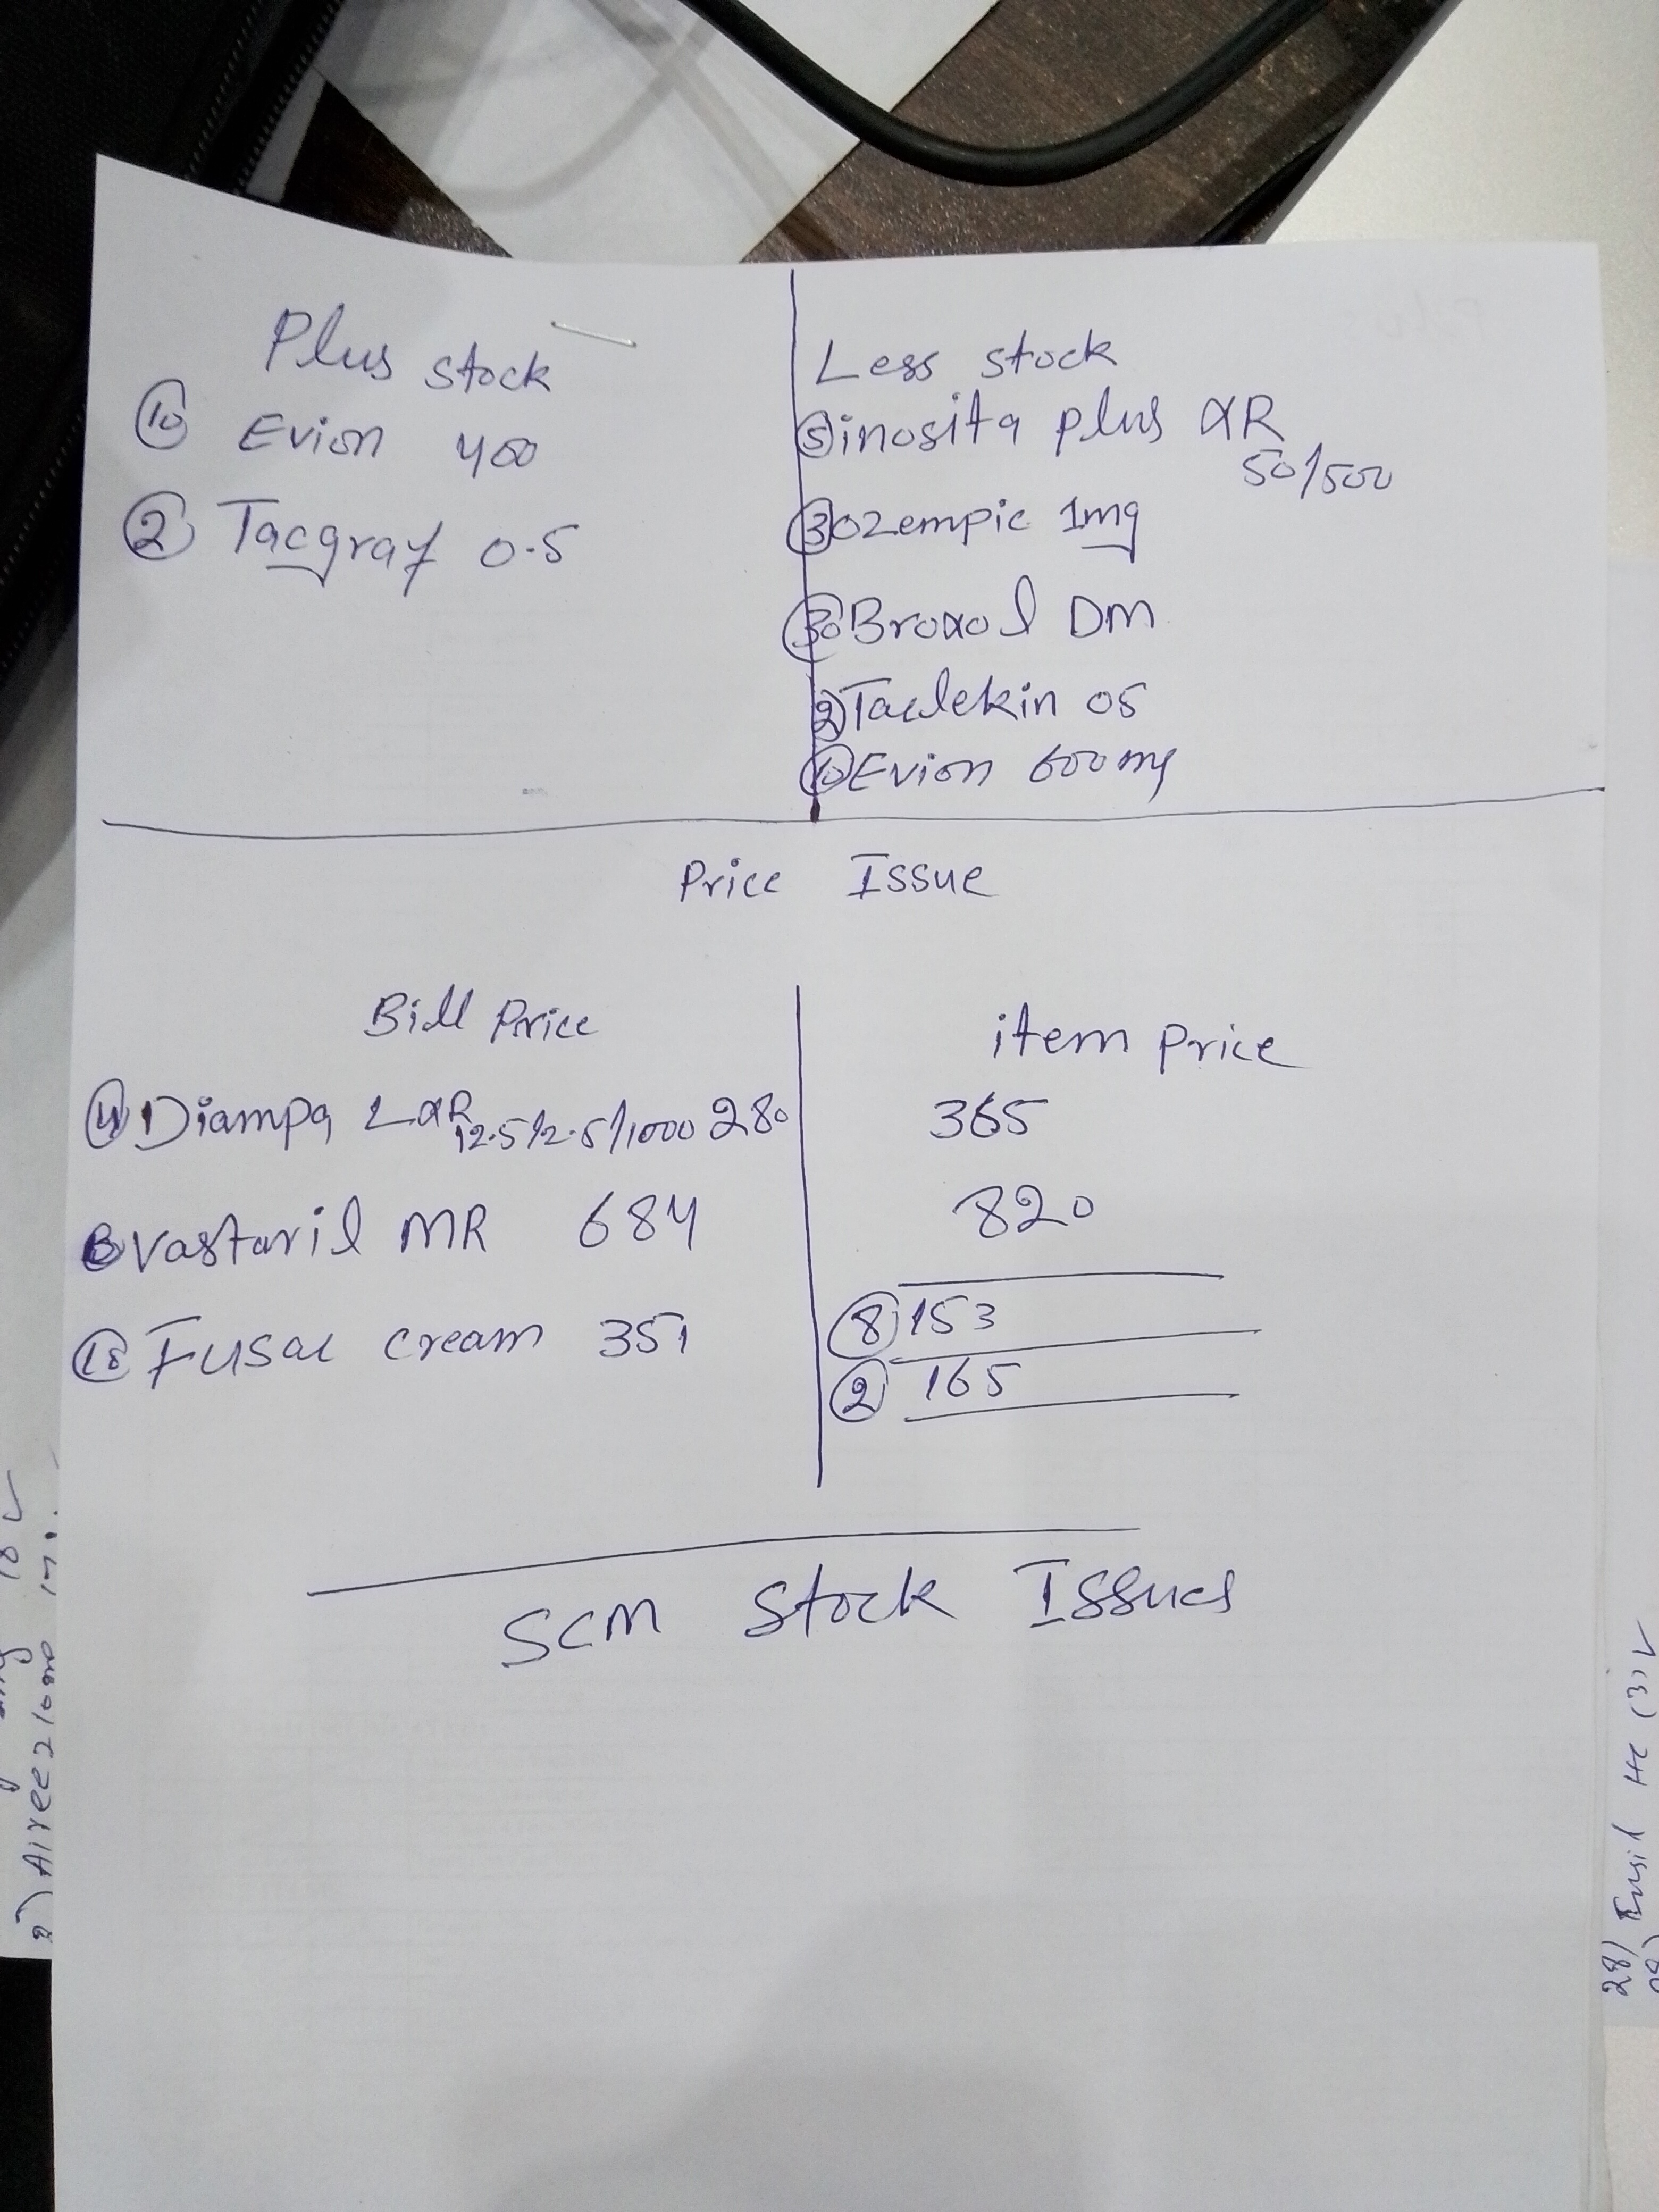 Plus stock
⑩ Evion 400
② Tacgraf 0.5
Less stock
⑤ inosita plus XR
50/500
③ ozempic 1mg
㉚ Broxol DM
② Taclekin 05
⑩ Evion 600mg
Price Issue
Bill Price
④ Diampa L XR 12.5/2.5/1000 280
Vastaril MR 684
Fusac cream 351
item price
365
820
⑧ 153
② 165
SCM Stock Issues
28) Fusil HC (3) ✓